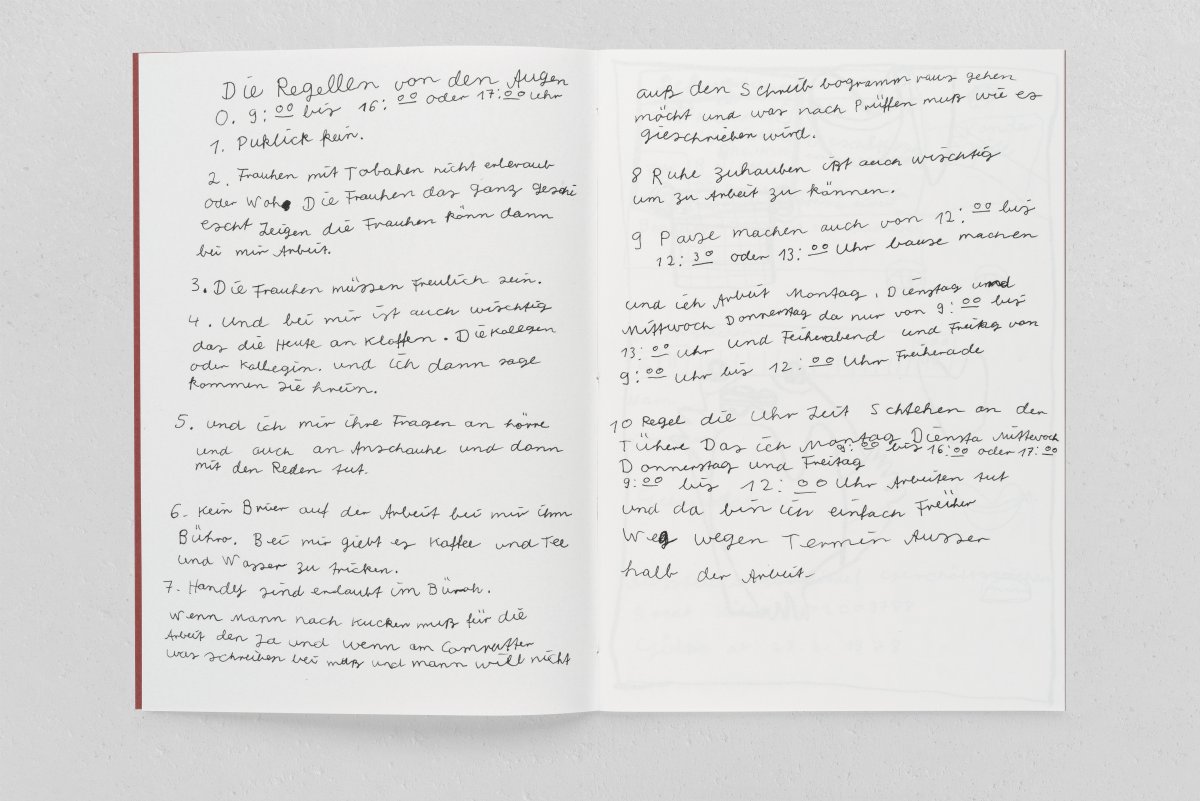 Die Regellen von den Augen
0. 9:00 bis 16:00 oder 17:00 Uhr
1. Puklick kein.
2. Frauhen mit Tobahen nicht erleraub
oder Woh Die Frauhen das ganz geschi
escht Zeigen die Frauhen könn dann
bei mir Arbeit.
3. Die Frauhen müssen Freulich sein.
4. Und bei mir ist auch wischtig
das die Heute an Kloffen. Die Kollegen
oder Kollegin. und ich dann sage
kommen sie hrein.
5. und ich mir ihre Fragen an hörre
und auch an Anschauhe und dann
mit den Reden tut.
6. Kein Brier auf der Arbeit bei mir ihm
Bühro. Bei mir giebt es Kaffee und Tee
und Wasser zu tricken.
7. Handy sind erlaubt im
Wenn Mann nach Kucken muß für die
Arbeit den Ja und wenn am Computter
was schreiben bei muß und mann will nicht
auß den Schreib bogramm raus gehen
möcht und was nach Prüffen muß wie es
gieschrieben wird.
8 Ruhe zuhauben ißt auch wischtig
um zu Arbeit zu kännen.
9 Pause machen auch von 12:00 bis
12:30 oder 13:00 Uhr bause machen
und ich Arbeit Montag, Dienstag und
Mittwoch Donnerstag da nur von 9:00 bis
13:00 Uhr und Feiherabend und Freitag von
9:00 Uhr bis 12:00 Uhr Freiherade
10 Regel die Uhr Zeit Schtehen an der
Tühere Das ich Montag Diensta Mittewoch
9:00 bis 16:00 oder 17:00
Donnerstag und Freitag
9:00 bis 12:00 Uhr Arbeiten tut
und da bin ich einfach Freiher
Weg wegen Termin Ausser
halb der Arbeit